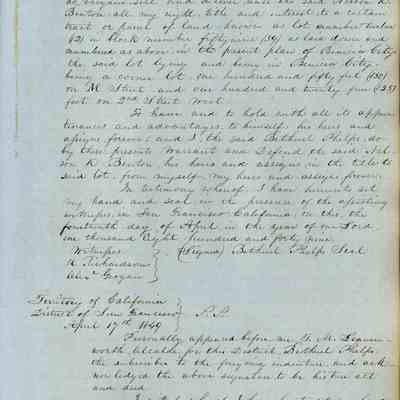 as bargain sell and deliver unto the said Nelson R.
Benton all my right title and interest to a certain
tract or parcel of land, known as lot number twelve
(12) in block number fifty nine (59) as laid down and
numbered as above in the present plan of Benicia City
the said lot lying and being in Benicia City
being a corner lot one hundred and fifty feet (150)
on M Street and one hundred and twenty five (125)
feet on 2nd Street West.
To have and to hold with all its appur
tenances and advantages to himself, his heirs and
assigns forever and I the said Bethuel Phelps do
by these presents Warrant and Defend the said Nel
son R. Benton, his heirs and assigns in the title to
said lot, from myself, my heirs and assigns forever.
In testimony whereof I have hereunto set
my hand and seal in the presence of the attesting
witnesses in San Francisco California on this the
fourteenth day of April in the year of our Lord
one thousand eight hundred and forty nine
Witnesses } (Signed) Bethuel Phelps Seal
Richardson
Alexr Grogan
Territory of California
District of San Francisco } S.S.
April 17th 1849
Personally appeared before me T. M. Leaven
worth Alcalde for this District Bethuel Phelps
the subscriber to the foregoing indenture and ack
nowledged the above signature to be his own act
and deed